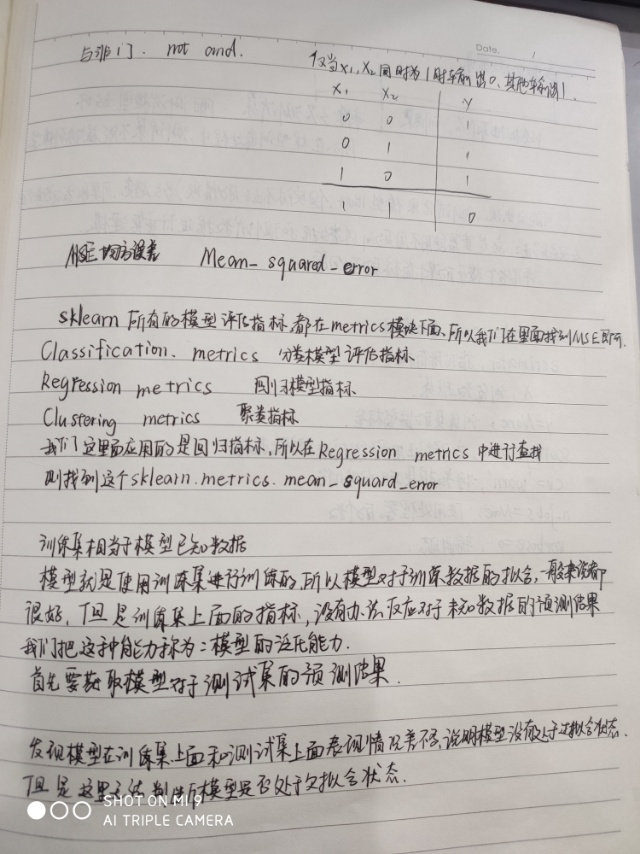 Date. 1
与非门. not and.
仅当x₁, x₂同时为1时车输出0, 其他车输出1.
x₁ x₂ y
0 0 1
0 1 1
1 0 1
1 1 0
MSE均方误差 Mean_squard_error
sklearn 所有的模型评估指标,都在metrics模块下面、所以我们在里面找到MSE即可.
Classification. metrics 分类模型评估指标
Regression metrics 回归模型指标
Clustering metrics 聚类指标
我们这里面应用的是回归指标,所以在Regression metrics中进行查找
则找到这个sklearn.metrics.mean_squard_error
训练集相当于模型已知数据
模型就是使用训练集进行训练的,所以模型对于训练数据的拟合,一般来说都
很好,但是训练集上面的指标,没有办法反应对于未知数据的预测结果
我们把这种能力称为:模型的泛化能力.
首先要获取模型对于测试集的预测结果.
发现模型在训练集上面和测试集上面表现情况差不多,说明模型没有处于过拟合状态.
但是这里无法判断模型是否处于欠拟合状态.
SHOT ON MI 9
AI TRIPLE CAMERA